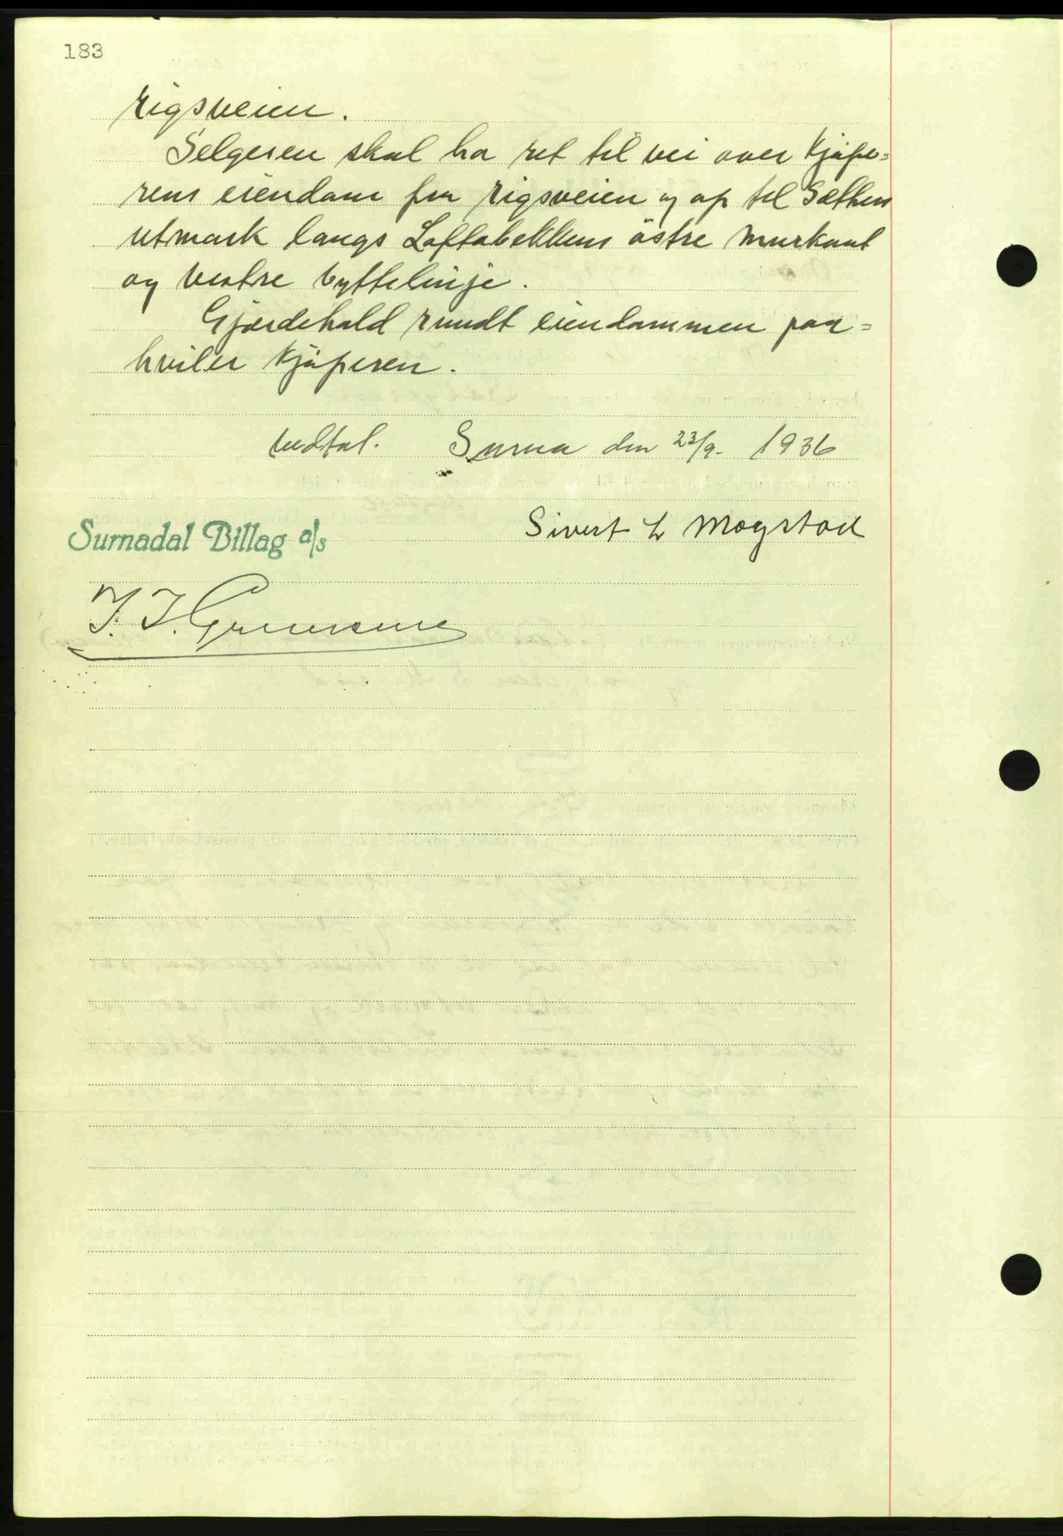 183
rigsveien.
Selgeren skal ha ret til vei over kjøpe=
rens eiendom fra rigsveien og op til Sæthers
utmark langs Loftabekkens østre murkant
og vestre byttelinje.
Gjærdehold rundt eiendommen paa=
hviler kjøperen.
Vedtat. Surna den 23/9. 1936
Surnadal Billag a/s
Sivert L Mogstad